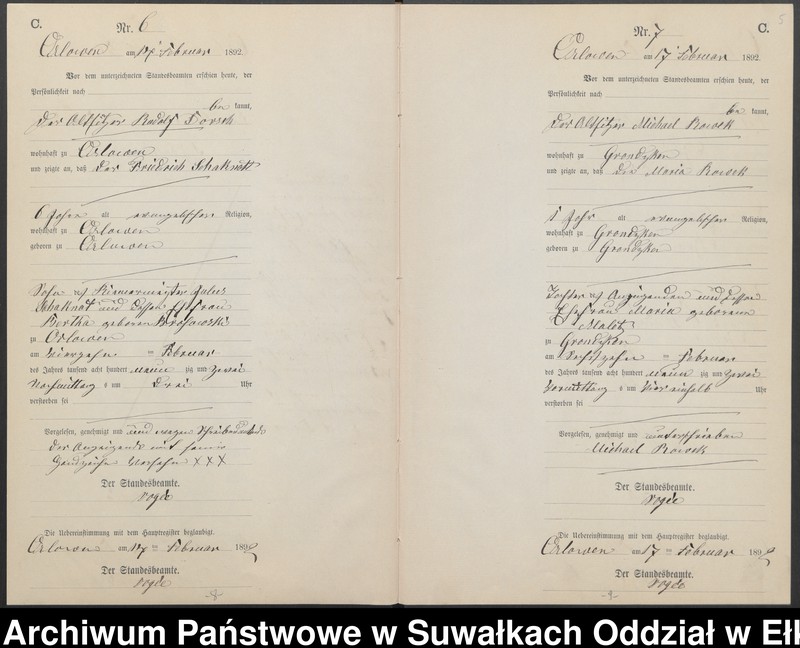 C.
Nr. 6
Orlowen am 17 Februar 1892.
Vor dem unterzeichneten Standesbeamten erschien heute, der
Persönlichkeit nach
be kannt,
der Altsitzer Rudolf
wohnhaft zu Orlowen
und zeigte an, daß der Friedrich Schaknat
6 Jahre alt evangelischer Religion,
wohnhaft zu Orlowen
geboren zu Orlowen
Sohn des Julius
Schaknat und dessen Ehefrau
Bertha geborene
zu Orlowen
am vierzehn ten Februar
des Jahres tausend acht hundert neun zig und zwei
Vormittags um drei Uhr
verstorben sei
Vorgelesen, genehmigt und und wegen
der Anzeigende mit seinem
Handzeichen versehn XXX
Der Standesbeamte.
Die Uebereinstimmung mit dem Hauptregister beglaubigt.
Orlowen am 17 ten Februar 1892
Der Standesbeamte.
-8-
Nr. 7
C.
5
Orlowen am 17 Februar 1892.
Vor dem unterzeichneten Standesbeamten erschien heute, der
Persönlichkeit nach
be kannt,
der Altsitzer Michael Rowek
wohnhaft zu Grondzken
und zeigte an, daß die Maria Rowek
1 Jahr alt evangelischer Religion,
wohnhaft zu Grondzken
geboren zu Grondzken
Tochter des Anzeigenden und dessen
Ehefrau Maria geborenen
zu Grondzken
am sechszehn ten Februar
des Jahres tausend acht hundert neun zig und zwei
Vormittags um vier einhalb Uhr
verstorben sei
Vorgelesen, genehmigt und unterschrieben
Michael Rowek
Der Standesbeamte.
Die Uebereinstimmung mit dem Hauptregister beglaubigt.
Orlowen am 17 ten Februar 1892
Der Standesbeamte.
-9-
Archiwum Państwowe w Suwałkach Oddział w Ełk